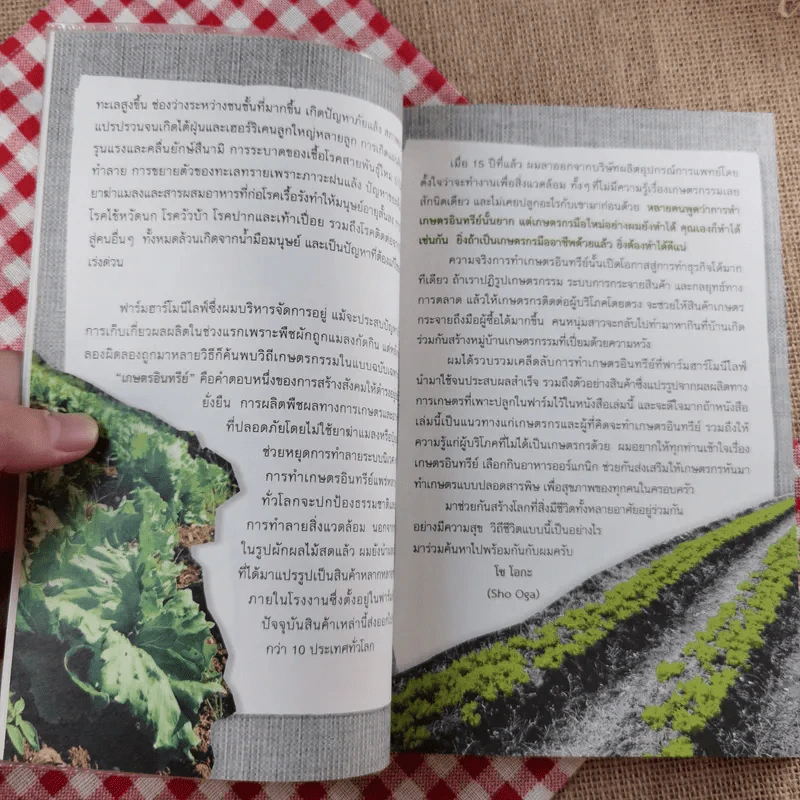 ทะเลสูงขึ้น ช่องว่างระหว่างชนชั้นที่มากขึ้น เกิดปัญหาภัยแล้ง
แปรปรวนจนเกิดไต้ฝุ่นและเฮอร์ริเคนลูกใหญ่หลายลูก การเกิด
รุนแรงและคลื่นยักษ์สึนามิ การระบาดของเชื้อโรคสายพันธุ์ใหม่
ทำลาย การขยายตัวของทะเลทรายเพราะภาวะฝนแล้ง ปัญหา
ยาฆ่าแมลงและสารผสมอาหารที่ก่อโรคเรื้อรังทำให้มนุษย์อายุสั้นลง
โรคไข้หวัดนก โรควัวบ้า โรคปากและเท้าเปื่อย รวมถึงโรคติดต่อจาก
สู่คนอื่นๆ ทั้งหมดล้วนเกิดจากน้ำมือมนุษย์ และเป็นปัญหาที่ต้อง
เร่งด่วน
ฟาร์มฮาร์โมนีไลฟ์ซึ่งผมบริหารจัดการอยู่ แม้จะประสบปัญหา
การเก็บเกี่ยวผลผลิตในช่วงแรกเพราะพืชผักถูกแมลงกัดกิน
ลองผิดลองถูกมาหลายวิธีก็ค้นพบวิธีเกษตรกรรมในแบบฉบับ
"เกษตรอินทรีย์" คือคำตอบหนึ่งของการสร้างสังคมให้ดำรงอยู่
ยั่งยืน การผลิตพืชผลทางการเกษตรและ
ที่ปลอดภัยโดยไม่ใช้ยาฆ่าแมลงหรือ
ช่วยหยุดการทำลายระบบนิเวศ
การทำเกษตรอินทรีย์แพร่หลาย
ทั่วโลกจะปกป้องธรรมชาติ
การทำลายสิ่งแวดล้อม นอกจาก
ในรูปผักผลไม้สดแล้ว ผมยังนำ
ที่ได้มาแปรรูปเป็นสินค้าหลากหลาย
ภายในโรงงานซึ่งตั้งอยู่ในฟาร์ม
ปัจจุบันสินค้าเหล่านี้ส่งออก
กว่า 10 ประเทศทั่วโลก
เมื่อ 15 ปีที่แล้ว ผมลาออกจากบริษัทผลิตอุปกรณ์การแพทย์โดย
ตั้งใจว่าจะทำงานเพื่อสิ่งแวดล้อม ทั้งๆ ที่ไม่มีความรู้เรื่องเกษตรกรรมเลย
สักนิดเดียว และไม่เคยปลูกอะไรกับเขามาก่อนด้วย หลายคนพูดว่าการทำ
เกษตรอินทรีย์นั้นยาก แต่เกษตรกรมือใหม่อย่างผมยังทำได้ คุณเองก็ทำได้
เช่นกัน ยิ่งถ้าเป็นเกษตรกรมืออาชีพด้วยแล้ว ยิ่งต้องทำได้ดีแน่
ความจริงการทำเกษตรอินทรีย์นั้นเปิดโอกาสสู่การทำธุรกิจได้มาก
ทีเดียว ถ้าเราปฏิรูปเกษตรกรรม ระบบการกระจายสินค้า และกลยุทธ์ทาง
การตลาด แล้วให้เกษตรกรติดต่อผู้บริโภคโดยตรง จะช่วยให้สินค้าเกษตร
กระจายถึงมือผู้ซื้อได้มากขึ้น คนหนุ่มสาวจะกลับไปทำมาหากินที่บ้านเกิด
ร่วมกันสร้างหมู่บ้านเกษตรกรรมที่เปี่ยมด้วยความหวัง
ผมได้รวบรวมเคล็ดลับการทำเกษตรอินทรีย์ที่ฟาร์มฮาร์โมนีไลฟ์
นำมาใช้จนประสบผลสำเร็จ รวมถึงตัวอย่างสินค้าซึ่งแปรรูปจากผลผลิตทาง
การเกษตรที่เพาะปลูกในฟาร์มไว้ในหนังสือเล่มนี้ และจะดีใจมากถ้าหนังสือ
เล่มนี้เป็นแนวทางแก่เกษตรกรและผู้ที่คิดจะทำเกษตรอินทรีย์ รวมถึงให้
ความรู้แก่ผู้บริโภคที่ไม่ได้เป็นเกษตรกรด้วย ผมอยากให้ทุกท่านเข้าใจเรื่อง
เกษตรอินทรีย์ เลือกกินอาหารออร์แกนิก ช่วยกันส่งเสริมให้เกษตรกรหันมา
ทำเกษตรแบบปลอดสารพิษ เพื่อสุขภาพของทุกคนในครอบครัว
มาช่วยกันสร้างโลกที่สิ่งมีชีวิตทั้งหลายอาศัยอยู่ร่วมกัน
อย่างมีความสุข วิถีชีวิตแบบนี้เป็นอย่างไร
มาร่วมค้นหาไปพร้อมกันกับผมครับ
โช โอกะ
(Sho Oga)